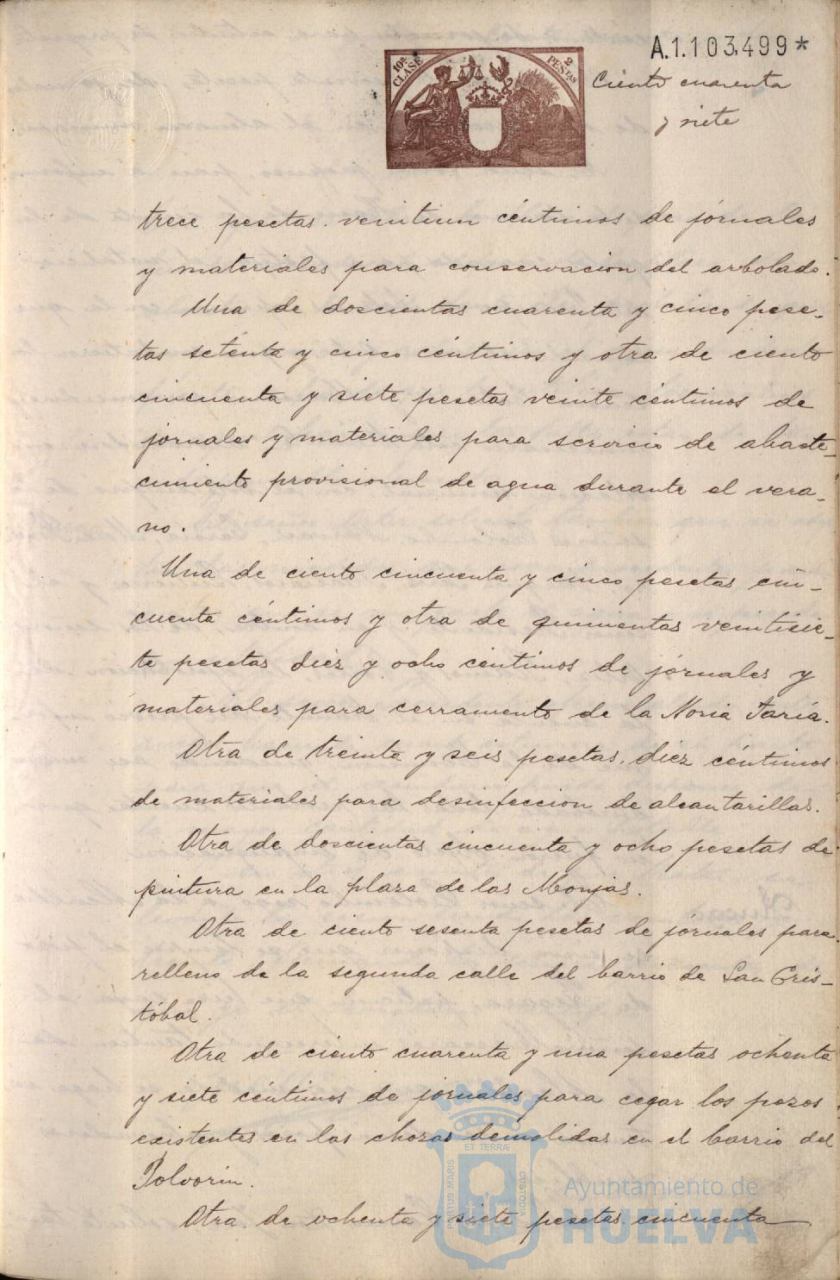 A.1.103.499*
10ª CLASE
2 PESTAS
Ciento cuarenta
y siete
trece pesetas veintiun céntimos de jornales
y materiales para conservacion del arbolado.
Una de doscientas cuarenta y cinco pese-
tas setenta y cinco céntimos y otra de ciento
cincuenta y siete pesetas veinte céntimos de
jornales y materiales para servicio de abaste-
cimiento provisional de agua durante el vera-
no.
Una de ciento cincuenta y cinco pesetas cin-
cuenta céntimos y otra de quinientas veintisie-
te pesetas diez y ocho céntimos de jornales y
materiales para cerramento de la Noria
Otra de treinta y seis pesetas, diez céntimos
de materiales para desinfeccion de alcantarillas.
Otra de doscientas cincuenta y ocho pesetas de
pintura en la plaza de las Monjas.
Otra de ciento sesenta pesetas de jornales para
relleno de la segunda calle del barrio de San Cris-
tóbal.
Otra de ciento cuarenta y una pesetas ochenta
y siete céntimos de jornales para cegar los pozos
existentes en las chozas demolidas en el barrio del
Polvorin.
Otra de ochenta y siete pesetas cincuenta
PORTUS MARIS
ET TERRÆ
CUSTODIA
Ayuntamiento de
HUELVA